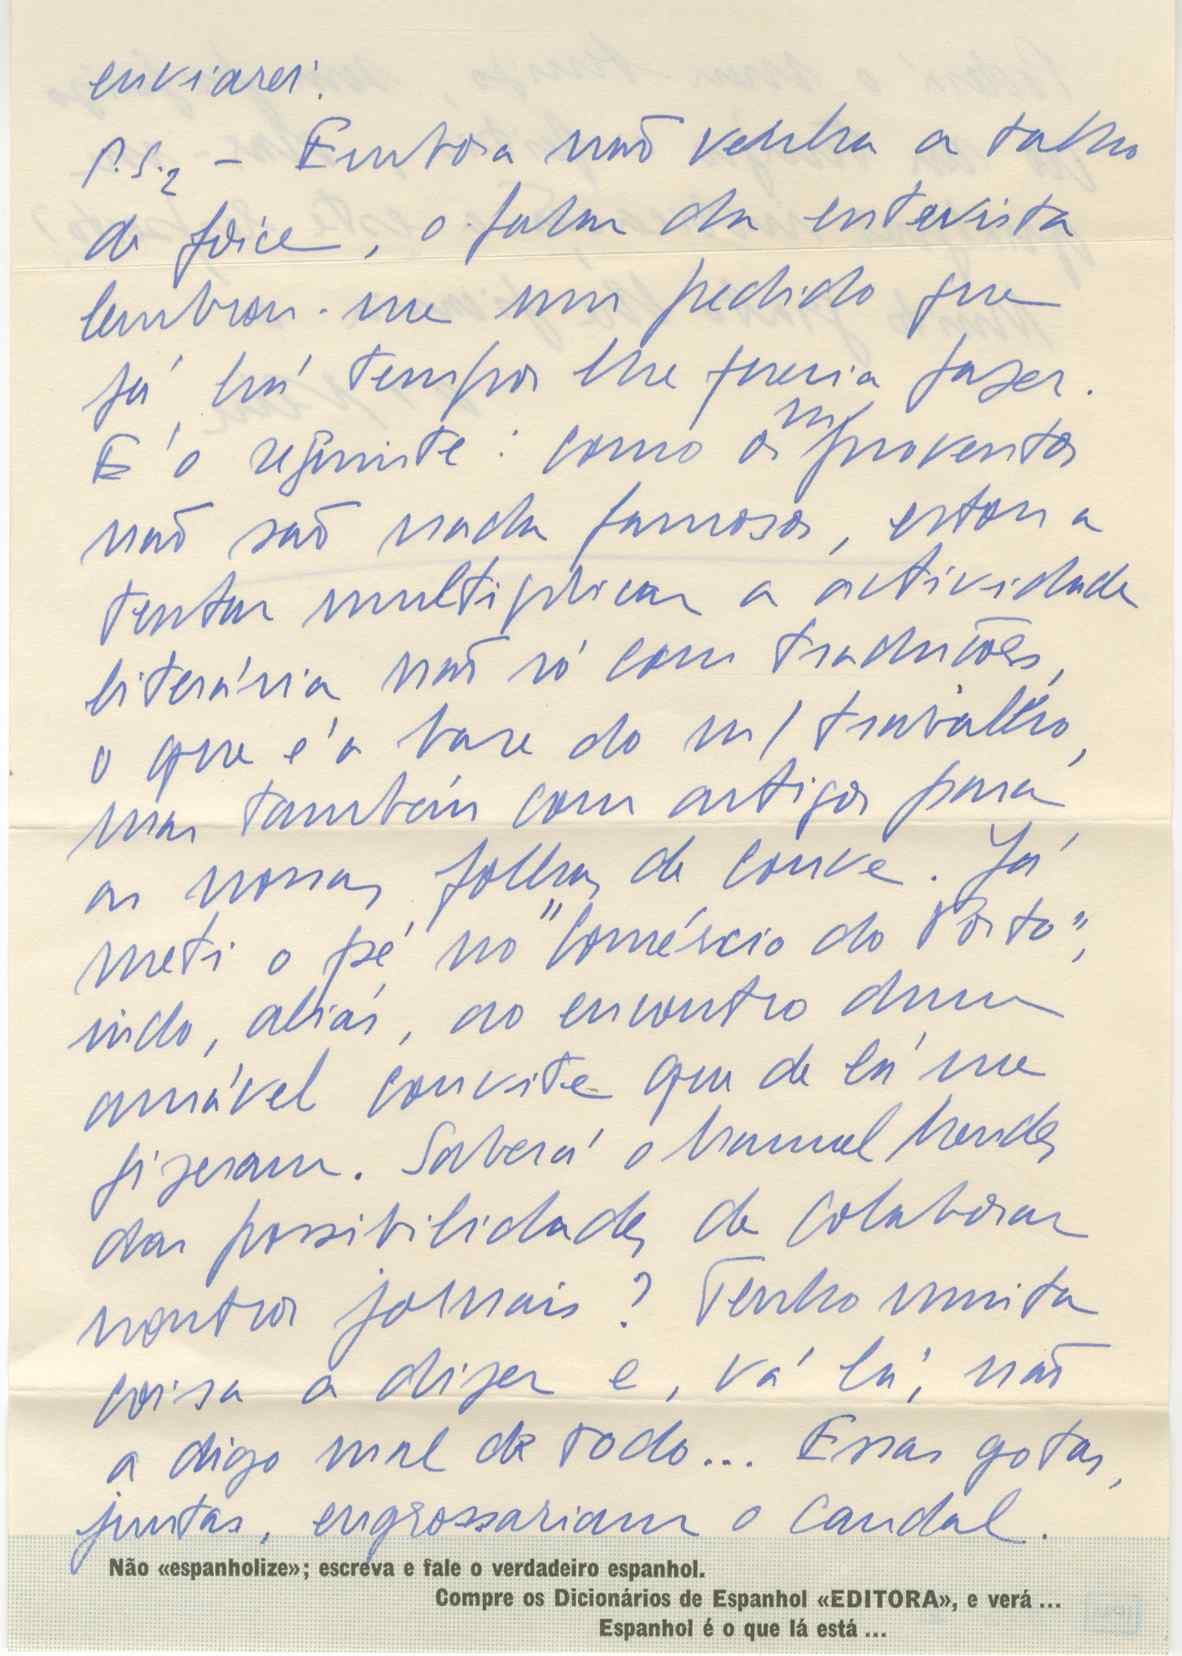 enviarei.
P.S.2 – Embora não venha a talho
de foice, o falar da entrevista
lembrou-me um pedido que
já há tempos lhe queria fazer.
É o seguinte: como os m/ proventos
não são nada famosos, estou a
tentar multiplicar a actividade
literária não só com traduções,
o que é a base do m/ trabalho,
mas também com artigos para
as nossas folhas de couve. Já
meti o pé no "Comércio do Porto",
indo, aliás, ao encontro dum
amável convite que de lá me
fizeram. Saberá o Manuel Mendes
das possibilidades de colaborar
noutros jornais? Tenho muita
coisa a dizer e, vá lá, não
a digo mal de todo... Essas gotas,
juntas, engrossariam o caudal.
Não «espanholize»; escreva e fale o verdadeiro espanhol.
Compre os Dicionários de Espanhol «EDITORA», e verá ...
Espanhol é o que lá está ...